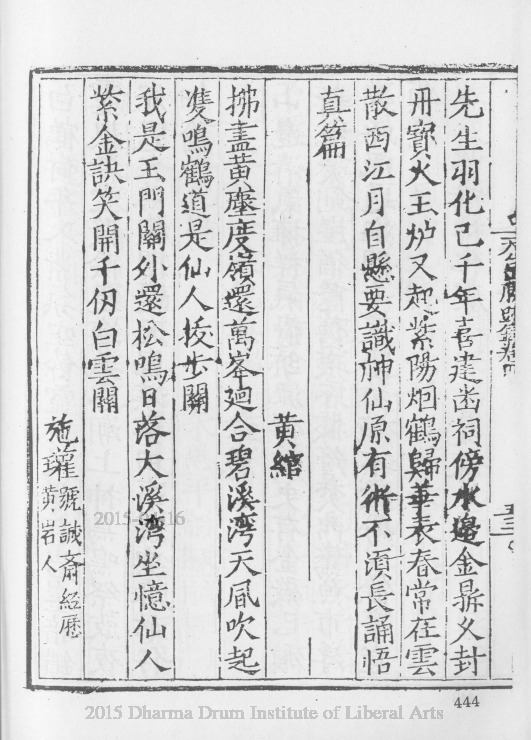 先生羽化已千年喜建崮祠傍水邊金鼎乂封
丹寶火玉炉又起紫陽烟鶴歸華表春常在雲
散西江月自懸要識神仙原有術不湏長誦悟
真篇
黄綰
拂盡黄塵度嶺還萬峯廻合碧溪湾天風吹起
雙鳴鶴道是仙人按步關
我是玉門關外還松鳴日落大溪湾坐憶仙人
紫金訣笑開千仞白雲關
施瓘號誠斎經歷
黄岩人
五三
2015-
16
444
2015 Dharma Drum Institute of Liberal Arts